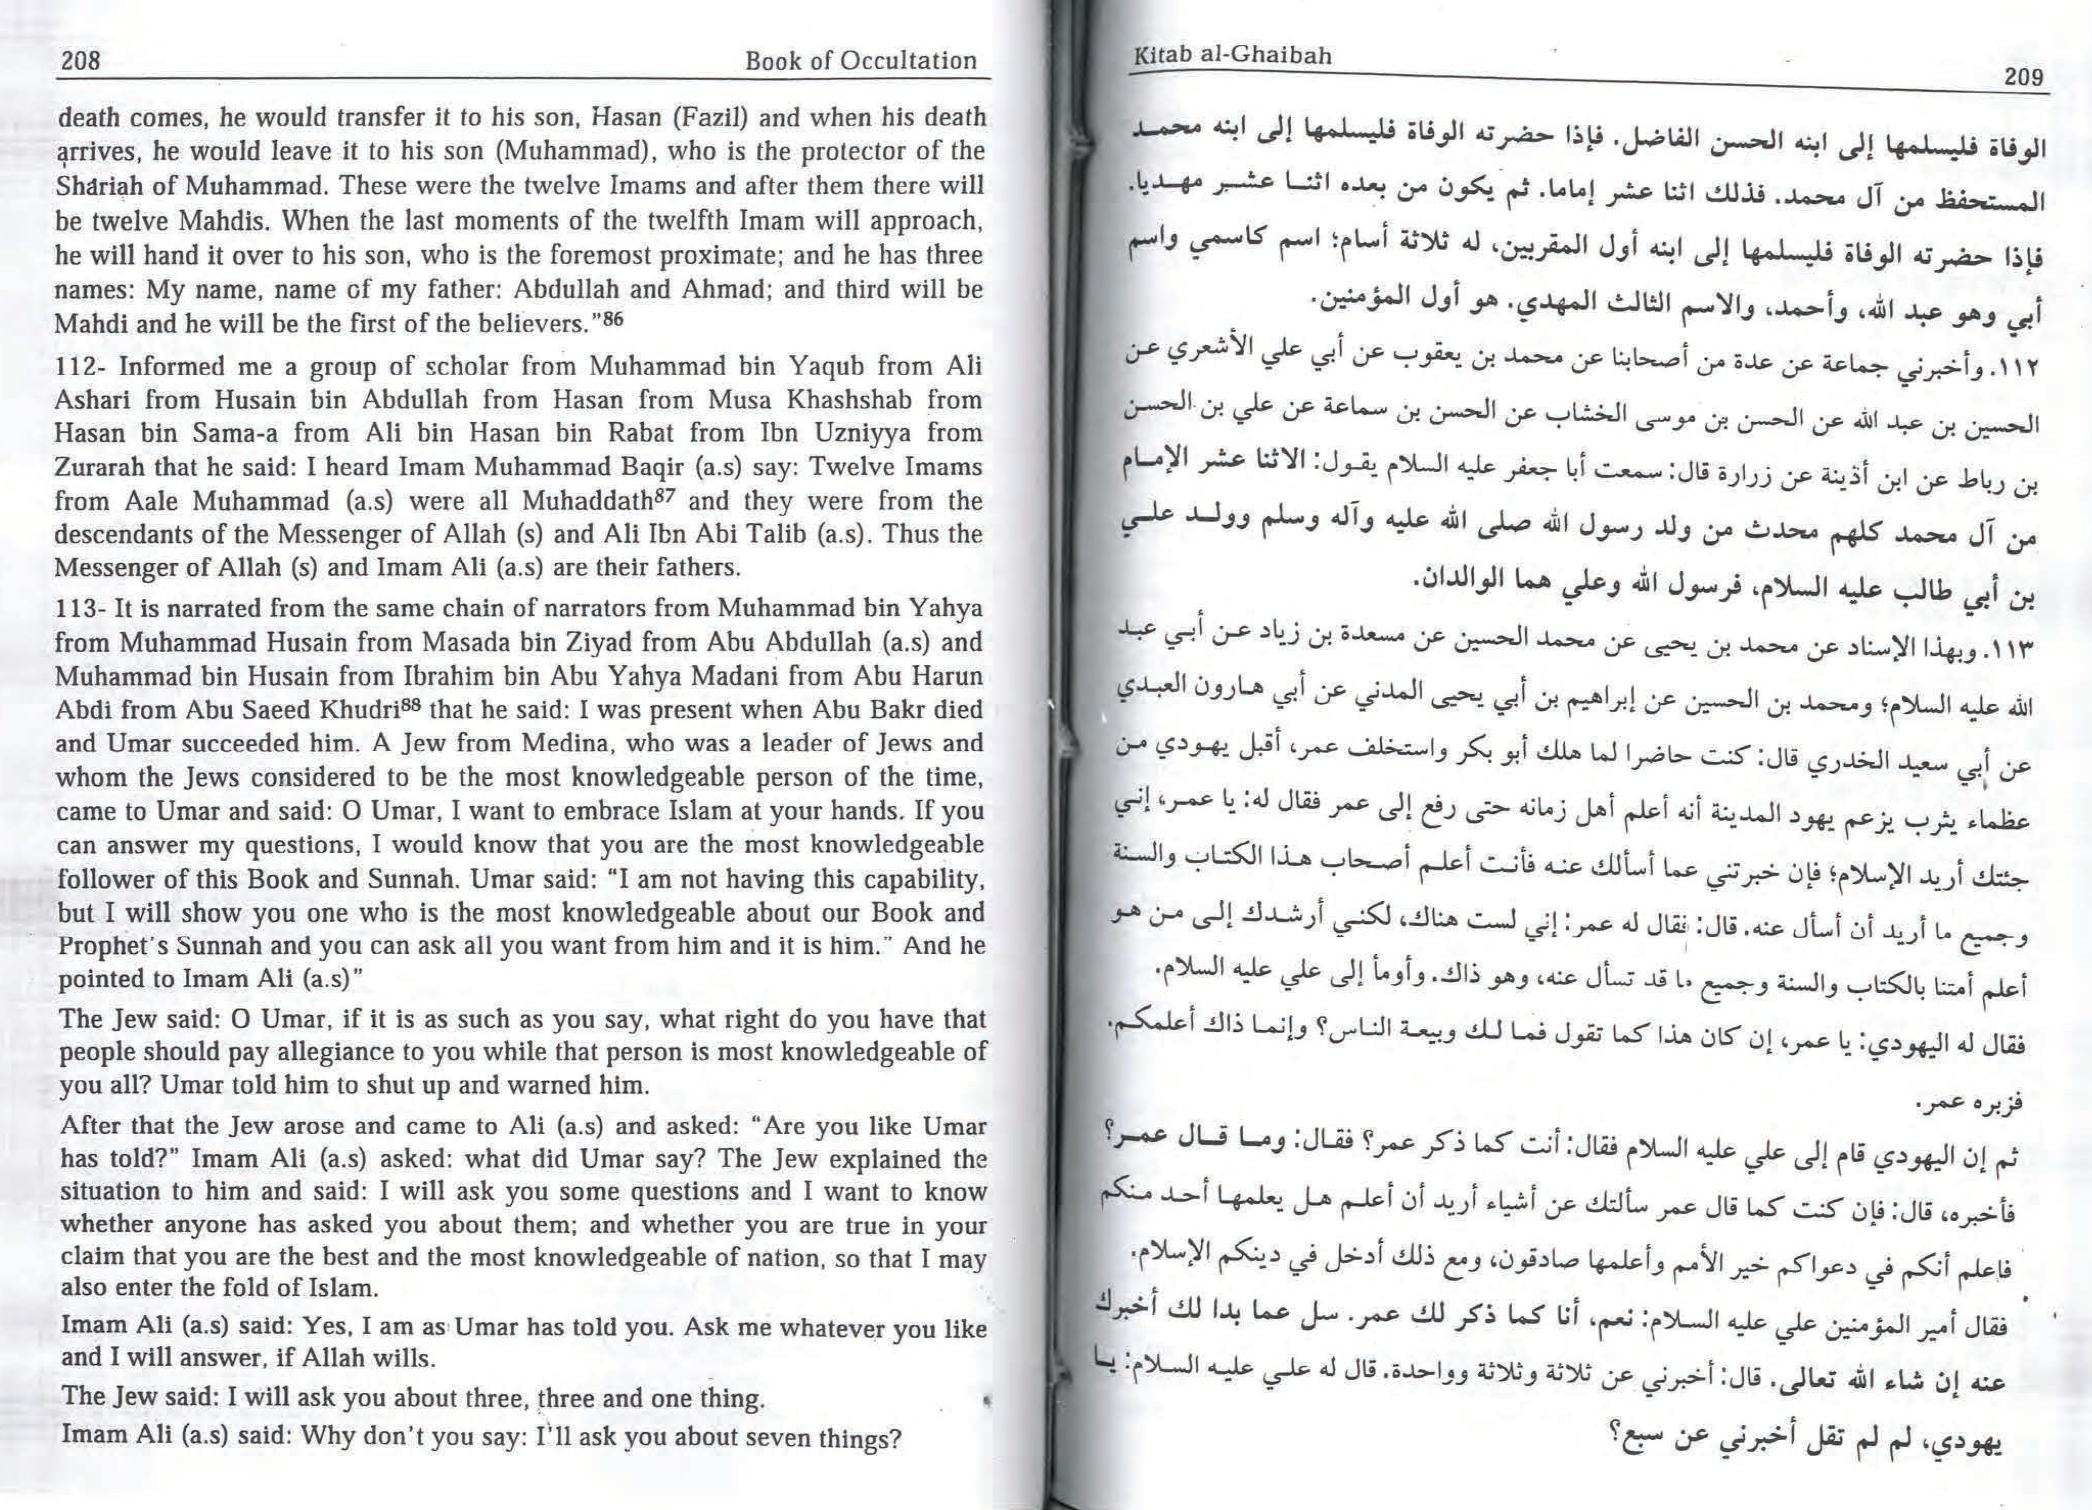 208
Book of Occultation
death comes, he would transfer it to his son, Hasan (Fazil) and when his death
arrives, he would leave it to his son (Muhammad), who is the protector of the
Shariah of Muhammad. These were the twelve Imams and after them there will
be twelve Mahdis. When the last moments of the twelfth Imam will approach,
he will hand it over to his son, who is the foremost proximate; and he has three
names: My name, name of my father: Abdullah and Ahmad; and third will be
Mahdi and he will be the first of the believers."86
112- Informed me a group of scholar from Muhammad bin Yaqub from Ali
Ashari from Husain bin Abdullah from Hasan from Musa Khashshab from
Hasan bin Sama-a from Ali bin Hasan bin Rabat from Ibn Uzniyya from
Zurarah that he said: I heard Imam Muhammad Baqir (a.s) say: Twelve Imams
from Aale Muhammad (a.s) were all Muhaddath87 and they were from the
descendants of the Messenger of Allah (s) and Ali Ibn Abi Talib (a.s). Thus the
Messenger of Allah (s) and Imam Ali (a.s) are their fathers.
113- It is narrated from the same chain of narrators from Muhammad bin Yahya
from Muhammad Husain from Masada bin Ziyad from Abu Abdullah (a.s) and
Muhammad bin Husain from Ibrahim bin Abu Yahya Madani from Abu Harun
Abdi from Abu Saeed Khudri88 that he said: I was present when Abu Bakr died
and Umar succeeded him. A Jew from Medina, who was a leader of Jews and
whom the Jews considered to be the most knowledgeable person of the time,
came to Umar and said: O Umar, I want to embrace Islam at your hands. If you
can answer my questions, I would know that you are the most knowledgeable
follower of this Book and Sunnah. Umar said: "I am not having this capability,
but I will show you one who is the most knowledgeable about our Book and
Prophet's Sunnah and you can ask all you want from him and it is him." And he
pointed to Imam Ali (a.s)"
The Jew said: O Umar, if it is as such as you say, what right do you have that
people should pay allegiance to you while that person is most knowledgeable of
you all? Umar told him to shut up and warned him.
After that the Jew arose and came to Ali (a.s) and asked: "Are you like Umar
has told?" Imam Ali (a.s) asked: what did Umar say? The Jew explained the
situation to him and said: I will ask you some questions and I want to know
whether anyone has asked you about them; and whether you are true in your
claim that you are the best and the most knowledgeable of nation, so that I may
also enter the fold of Islam.
Imam Ali (a.s) said: Yes, I am as Umar has told you. Ask me whatever you like
and I will answer, if Allah wills.
The Jew said: I will ask you about three, three and one thing.
Imam Ali (a.s) said: Why don't you say: I'll ask you about seven things?
Kitab al-Ghaibah
209
الوفاة فليسلمها إلى ابنه الحسن الفاضل. فإذا حضرته الوفاة فليسلمها إلى ابنه محمد
المستحفظ من آل محمد. فذلك اثنا عشر إماما. ثم يكون من بعده اثنا عشر مهديا.
فإذا حضرته الوفاة فليسلمها إلى ابنه أول المقربين، له ثلاثة أسام؛ اسم كاسمي واسم
أبي وهو عبد الله، وأحمد، والاسم الثالث المهدي. هو أول المؤمنين.
١١٢. وأخبرني جماعة عن عدة من أصحابنا عن محمد بن يعقوب عن أبي علي الأشعري عن
الحسين بن عبد الله عن الحسن بن موسى الخشاب عن الحسن بن سماعة عن علي بن الحسن
بن رباط عن ابن أذينة عن زرارة قال: سمعت أبا جعفر عليه السلام يقول: الاثنا عشر الإمام
من آل محمد كلهم محدث من ولد رسول الله صلى الله عليه وآله وسلم وولد علي
بن أبي طالب عليه السلام، فرسول الله وعلي هما الوالدان.
١١٣. وبهذا الإسناد عن محمد بن يحيى عن محمد الحسين عن مسعدة بن زياد عن أبي عبد
الله عليه السلام؛ ومحمد بن الحسين عن إبراهيم بن أبي يحيى المدني عن أبي هارون العبدي
عن أبي سعيد الخدري قال: كنت حاضرا لما هلك أبو بكر واستخلف عمر، أقبل يهودي من
عظماء يثرب يزعم يهود المدينة أنه أعلم أهل زمانه حتى رفع إلى عمر فقال له: يا عمر، إني
جئتك أريد الإسلام؛ فإن خبرتني عما أسألك عنه فأنت أعلم أصحاب هذا الكتاب والسنة
وجميع ما أريد أن أسأل عنه. قال: فقال له عمر: إني لست هناك، لكني أرشدك إلى من هو
أعلم أمتنا بالكتاب والسنة وجميع ما قد تسأل عنه، وهو ذاك. وأومأ إلى علي عليه السلام.
فقال له اليهودي: يا عمر، إن كان هذا كما تقول فما لك وبيعة الناس؟ وإنما ذاك أعلمكم.
فزبره عمر.
ثم إن اليهودي قام إلى علي عليه السلام فقال: أنت كما ذكر عمر؟ فقال: وما قال عمر؟
فأخبره، قال: فإن كنت كما قال عمر سألتك عن أشياء أريد أن أعلم هل يعلمها أحد منكم
فاعلم أنكم في دعواكم خير الأمم وأعلمها صادقون، ومع ذلك أدخل في دينكم الإسلام.
فقال أمير المؤمنين علي عليه السلام: نعم، أنا كما ذكر لك عمر. سل عما بدا لك أخبرك
عنه إن شاء الله تعالى. قال: أخبرني عن ثلاثة وثلاثة وواحدة. قال له علي عليه السلام: يا
يهودي، لم لم تقل أخبرني عن سبع؟